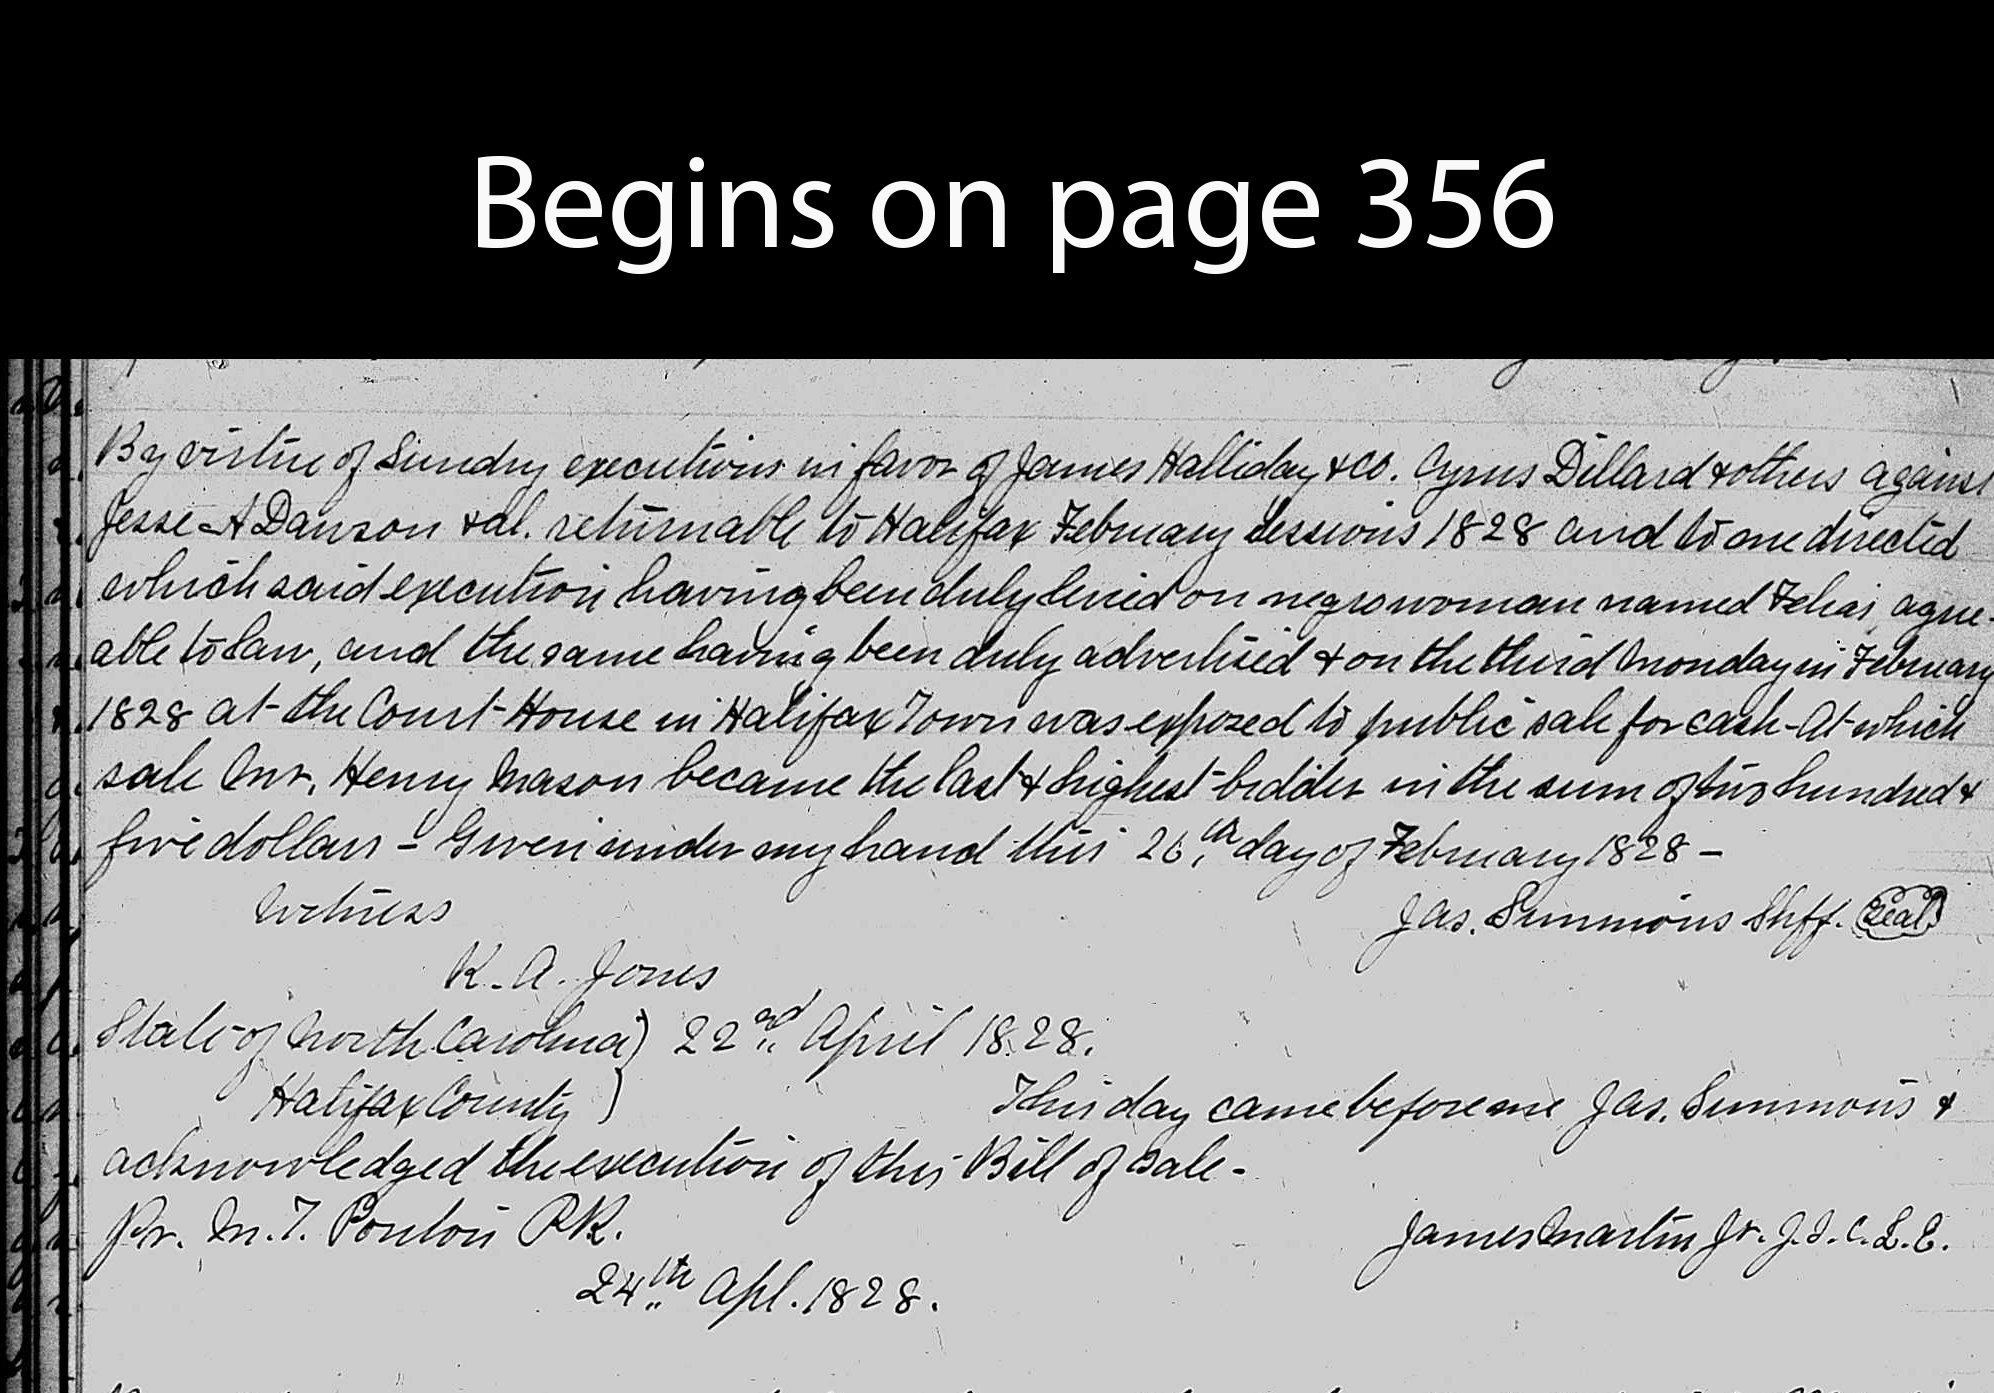 Begins on page 356
By virtue of Sundry executions in favor of James Halliday & co. Cyrus Dillard & others against
Jesse A Dawson & al. returnable to Halifax February Sessions 1828 and to one directed
which said execution having been duly levied on negro woman named agree-
able to law, and the same having been duly advertised & on the third Monday in February
1828 at the Court House in Halifax Town was exposed to public sale for cash - At which
sale Mr. Henry Mason became the last & highest bidder in the sum of two hundred &
five dollars - Given under my hand this 26th day of February 1828 -
Witness Jas. Simmons Shff. Seal
K. A. Jones
State of North Carolina) 22nd April 1828.
Halifax County ) This day came before me Jas. Simmons &
acknowledged the execution of this Bill of Sale -
Pr. M. T. Ponton P.R. James Martin Jr. J.S.C.L.E.
24th Apl. 1828.